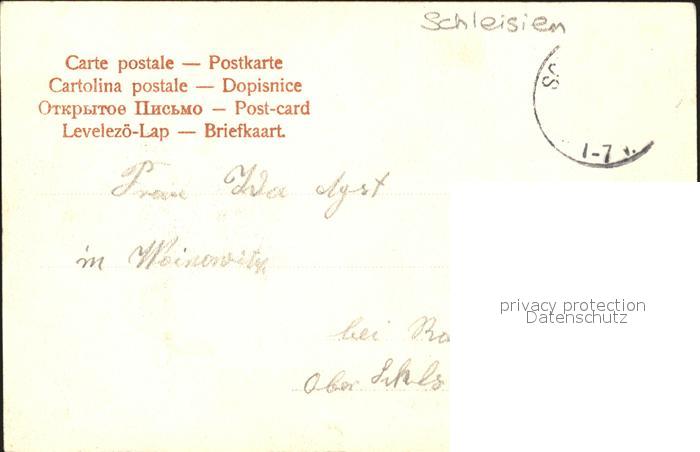 Schleisien
Carte postale — Postkarte
Cartolina postale — Dopisnice
Открытое Письмо — Post-card
Levelező-Lap — Briefkaart.
SS
1-7 V.
Frau Ida
in Woinowitz
privacy protection
Datenschutz
bei Ra
Ober Schls